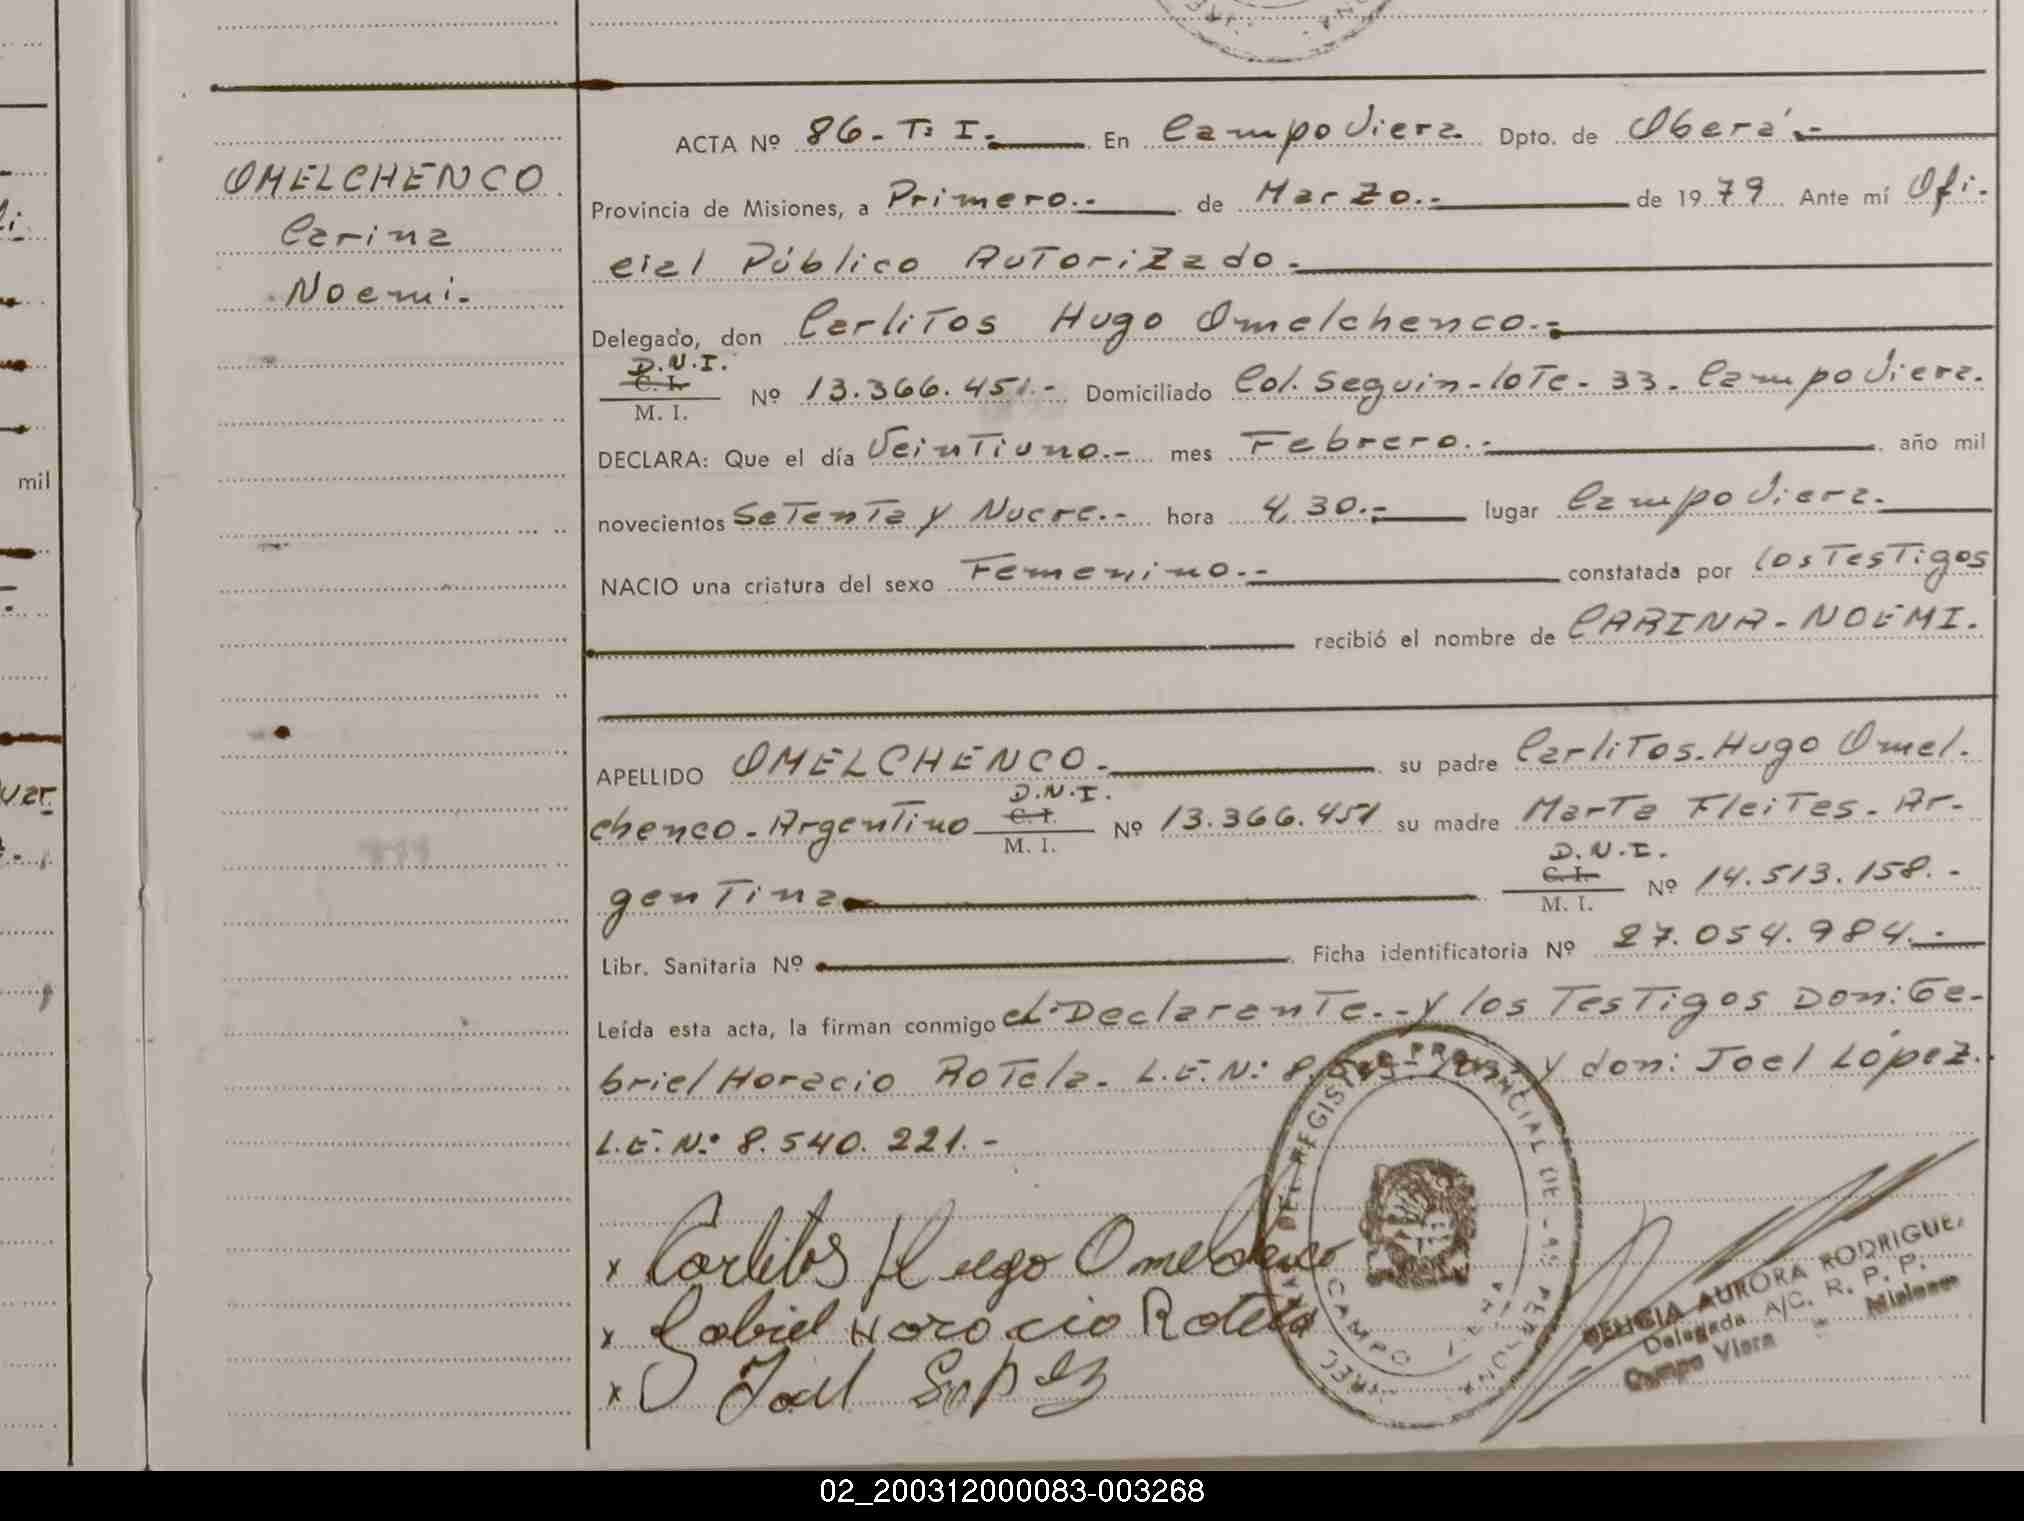 OMELCHENCO
Carina
Noemi.
ACTA Nº 86 - T: I. En Campo Viera Dpto. de Oberá.-
Provincia de Misiones, a Primero.- de Marzo.- de 1979 Ante mí Ofi-
cial Público Autorizado.-
Delegado, don Carlitos Hugo Omelchenco.-
D.N.I.
C. I.
M. I. Nº 13.366.451.- Domiciliado Col. Seguin - lote - 33 - Campo Viera.
DECLARA: Que el día Veintiuno.- mes Febrero.- año mil
novecientos Setenta y Nueve.- hora 4,30.- lugar Campo Viera.
NACIO una criatura del sexo Femenino.- constatada por los Testigos
recibió el nombre de CARINA - NOEMI.
APELLIDO OMELCHENCO.- su padre Carlitos. Hugo Omel.
D.N.I.
chenco - Argentino C. I. Nº 13.366.451 su madre Marta Fleites - Ar-
M. I.
D.N.I.
gentina C. I. Nº 14.513.158.-
M. I.
Libr. Sanitaria Nº Ficha identificatoria Nº 27.054.984.-
Leída esta acta, la firman conmigo el Declarante.- y los Testigos Don: Ga-
briel Horacio Rotela - L.E. N: y don: Joel López.
L.E. N: 8.540.221.-
x Carlitos Hugo Omelchenco
x Gabriel Horacio Rotela
x Joel Lopez
REGISTRO PROVINCIAL DE LAS PERSONAS
CAMPO VIERA
AURORA RODRIGUEZ
Delegada A/C. R. P. P.
Campo Viera - Misiones
mil
02_200312000083-003268